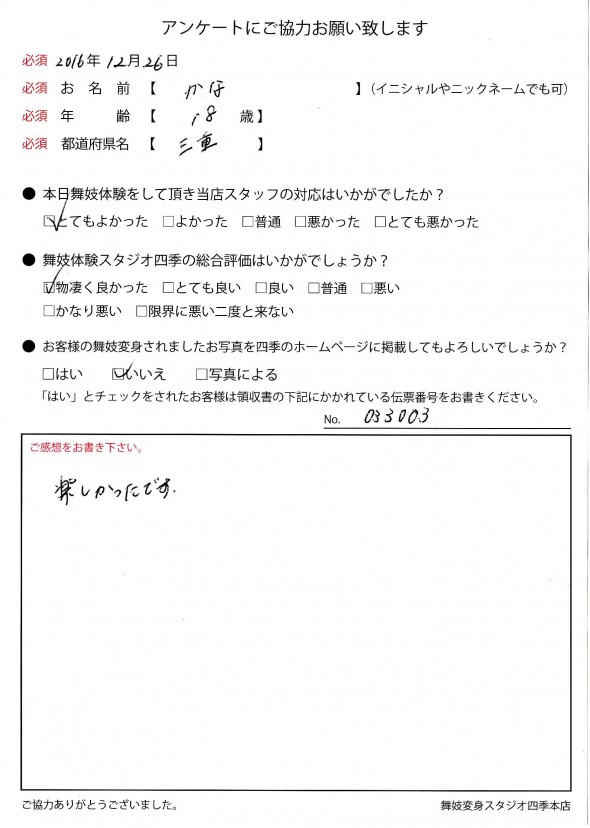 アンケートにご協力お願い致します
必須 2016年 12月 26日
必須 お 名 前 【 かほ 】（イニシャルやニックネームでも可）
必須 年 齢 【 18 歳】
必須 都道府県名 【 三重 】
● 本日舞妓体験をして頂き当店スタッフの対応はいかがでしたか？
☑とてもよかった □よかった □普通 □悪かった □とても悪かった
● 舞妓体験スタジオ四季の総合評価はいかがでしょうか？
☑物凄く良かった □とても良い □良い □普通 □悪い
□かなり悪い □限界に悪い二度と来ない
● お客様の舞妓変身されましたお写真を四季のホームページに掲載してもよろしいでしょうか？
□はい ☑いいえ □写真による
「はい」とチェックをされたお客様は領収書の下記にかかれている伝票番号をお書きください。
No. 033003
ご感想をお書き下さい。
楽しかったです.
ご協力ありがとうございました。
舞妓変身スタジオ四季本店